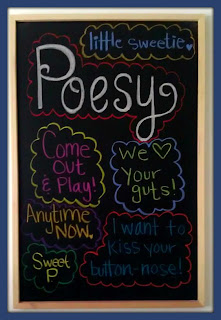 little sweetie.
Poesy
Come
Out
& Play!
We ♡
Your
guts!
Anytime
NOW.
I want to
kiss your
button-nose!
Sweet
P